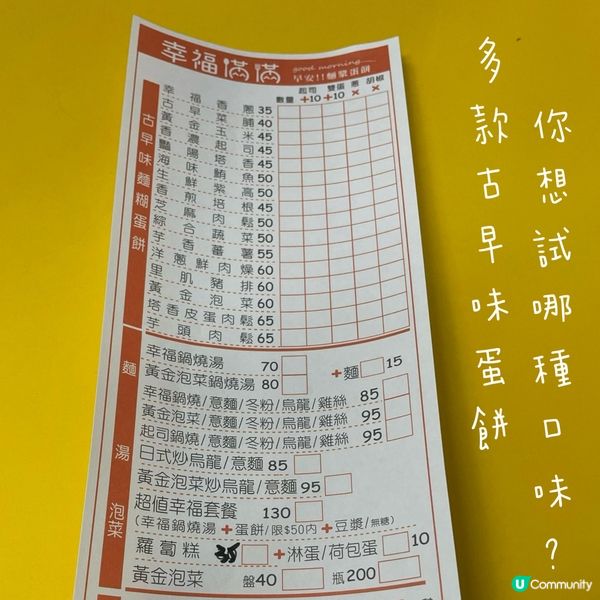 幸福滿滿
good morning
早安!!麵漿蛋餅
數量 起司+10 雙蛋+10 蔥× 胡椒×
古早味麵糊蛋餅
幸福香蔥35
古早菜脯40
黃金玉米45
香濃起司45
豔陽塔香45
海味鮪魚50
生鮮紫高50
香煎培根45
芝麻肉鬆50
綜合蔬菜50
芋香蕃薯55
洋蔥鮮肉燥60
里肌豬排60
黃金泡菜60
塔香皮蛋肉鬆65
芋頭肉鬆65
麵 湯 泡菜
幸福鍋燒湯 70
黃金泡菜鍋燒湯 80
+麵 15
幸福鍋燒/意麵/冬粉/烏龍/雞絲 85
黃金泡菜/意麵/冬粉/烏龍/雞絲 95
起司鍋燒/意麵/冬粉/烏龍/雞絲 95
日式炒烏龍/意麵 85
黃金泡菜炒烏龍/意麵 95
超值幸福套餐 130
(幸福鍋燒湯+蛋餅/限$50內+豆漿/無糖)
蘿蔔糕 35 +淋蛋/荷包蛋 10
黃金泡菜 盤40 瓶200
你想試哪種口味?
多款古早味蛋餅
U Community